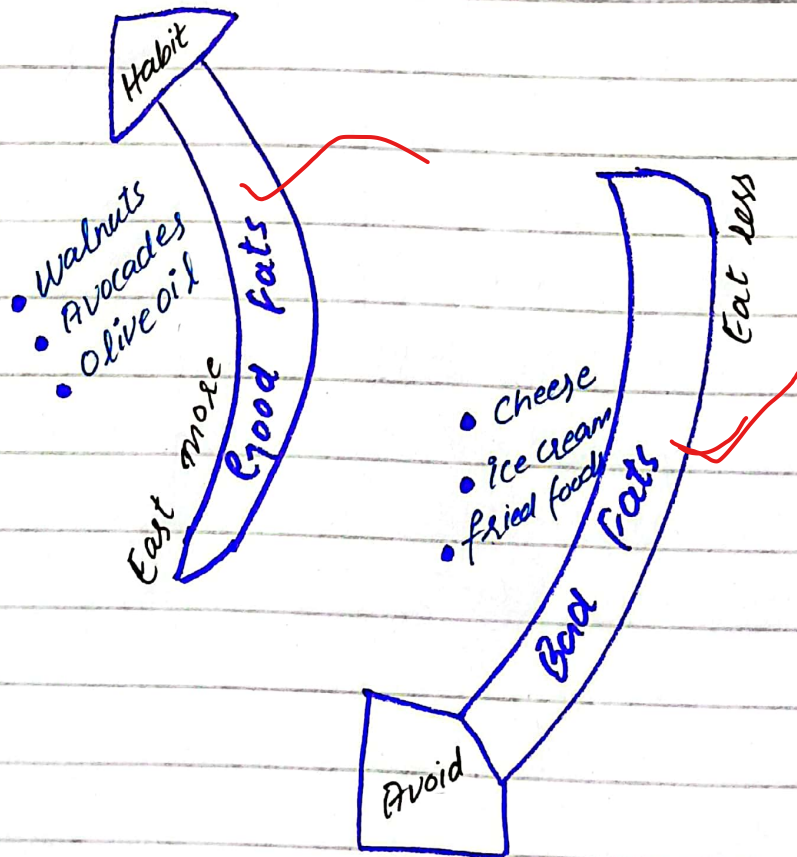 Habit
Good Fats
• Walnuts
• Avocades
• Olive oil
East more
Eat less
• Cheese
• ice cream
• fried foods
Bad Fats
Avoid